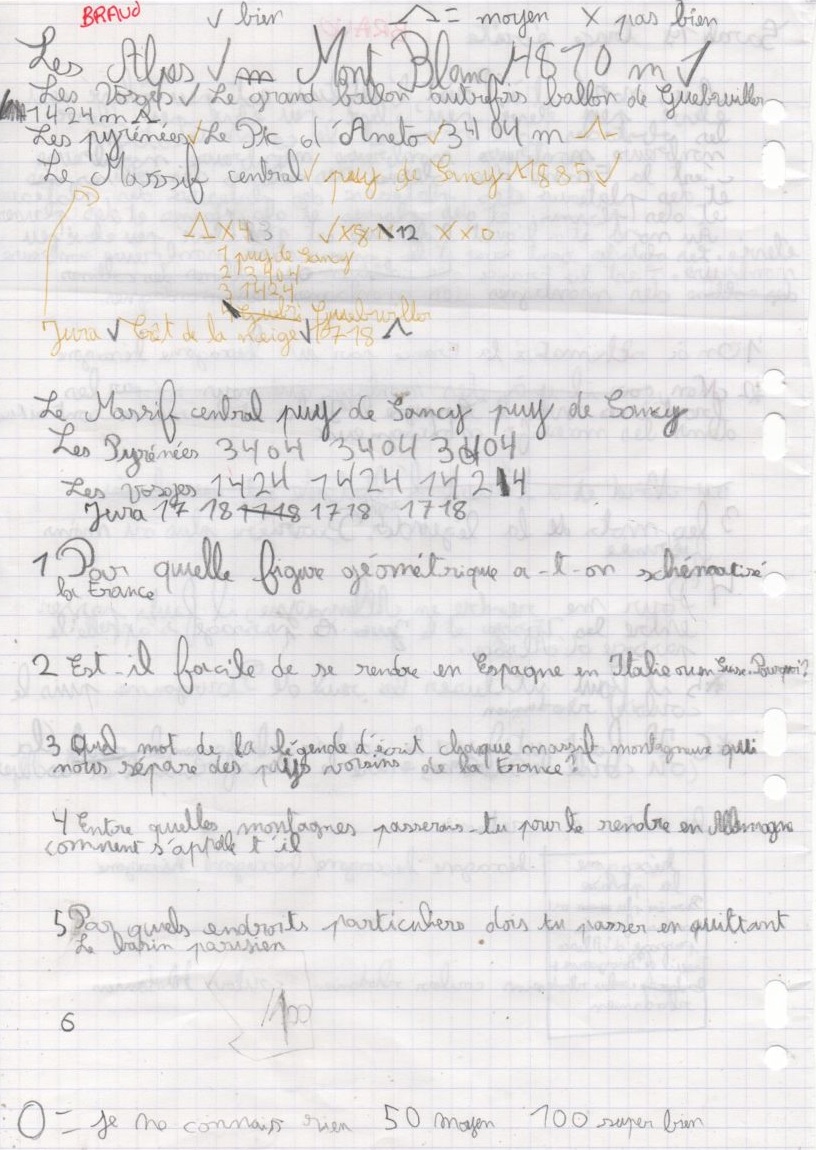 BRAUD √ bien Λ = moyen X pas bien
Les Alpes √ Mont Blanc √ 4810 m √
Les Vosges √ Le grand ballon autrefois ballon de Guebwiller
1424 m Λ
Les pyrénées √ Le Pic d'Aneto √ 3404 m Λ
Le Masssif central √ puy de Sancy Λ 1885 √
Λ X 4 3 √ X 8 12 X X 0
1 puy de Sancy
2 3404
3 1424
Guebwiller
Jura √ Crêt de la neige √ 1718 Λ
Le Massif central puy de Sancy puy de Sancy
Les Pyrénées 3404 3404 3404
Les vosges 1424 1424 1424
Jura 17 18 1718 1718 1718
1 Par quelle figure géométrique a-t-on schématisé
la France
2 Est-il facile de se rendre en Espagne en Italie ou en Suisse. Pourquoi?
3 Quel mot de la légende d'écrit chaque massif montagneux qui
nous sépare des pays voisins de la France?
4 Entre quelles montagnes passerais-tu pour te rendre en Allemagne
comment s'appelle t'il
5 Par quels endroits particuliers dois tu passer en quittant
Le bassin parisien
6
/100
0 = je ne connais rien 50 moyen 100 super bien